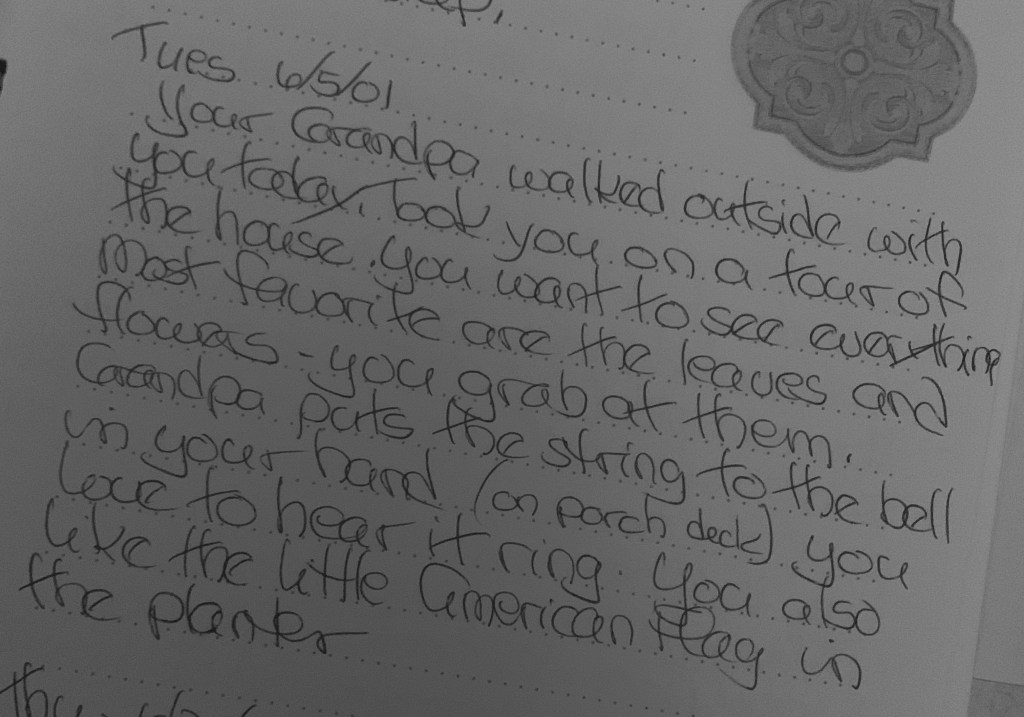 Tues 6/5/01
Your Grandpa walked outside with
you today. Took you on a tour of
the house. You want to see everything
most favorite are the leaves and
flowers - you grab at them.
Grandpa puts the string to the bell
in your hand (on porch deck) you
love to hear it ring. You also
like the little American Flag in
the planter